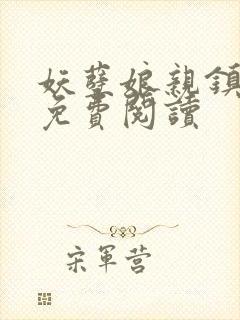 妖孽娘親鎮
免費閱讀
宋軍营